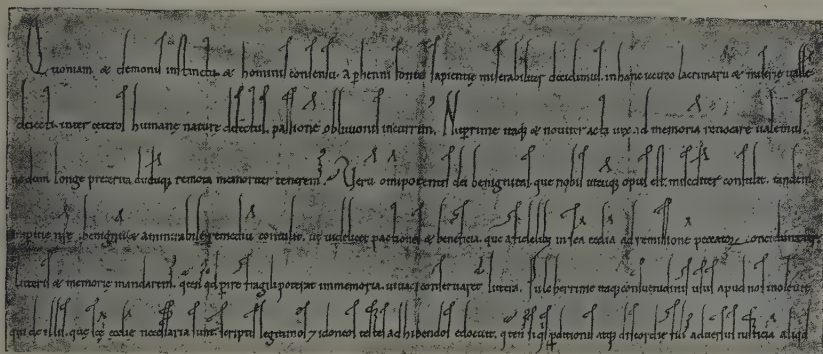 Quoniam & demonis instinctu & hominis consensu . a p̄henni fonte sapientię miserabiliter decidimus . in hanc uero lacrimarū & miserię ualle
deiecti . inter ceteros humanę naturę defectus . passionē obliuionis incurrim; Nuperrime itaq; & nouiter acta uix ad memoriā reuocare ualemus .
nedum longe preterita diuq; remota memoriter tenerem; Verū omnipotentis dei benignitas . que nobis utcūq; opus est . misericditer consulat . tandem
 benignū & ammirabile remediū consulit . ut uidelicet pactiones & beneficia . que a fidelib; in sc̄a ecclia ad remissionē peccatorꝝ
litteris & memorię mandarem; q̄tin; qd̄ p̄ire fragilis poterat in memoria . uiuaci conseruaret littera . Saluberrime itaq; conueniamus usus apud nos
qui de illis . que sc̄ę ecclię necessaria sunt . scriptū legitimos ⁊ idoneos testes adhibendos edocuit . q̄tin; si qs p̄ditionis atq; discordię filius aduersus iusticiā